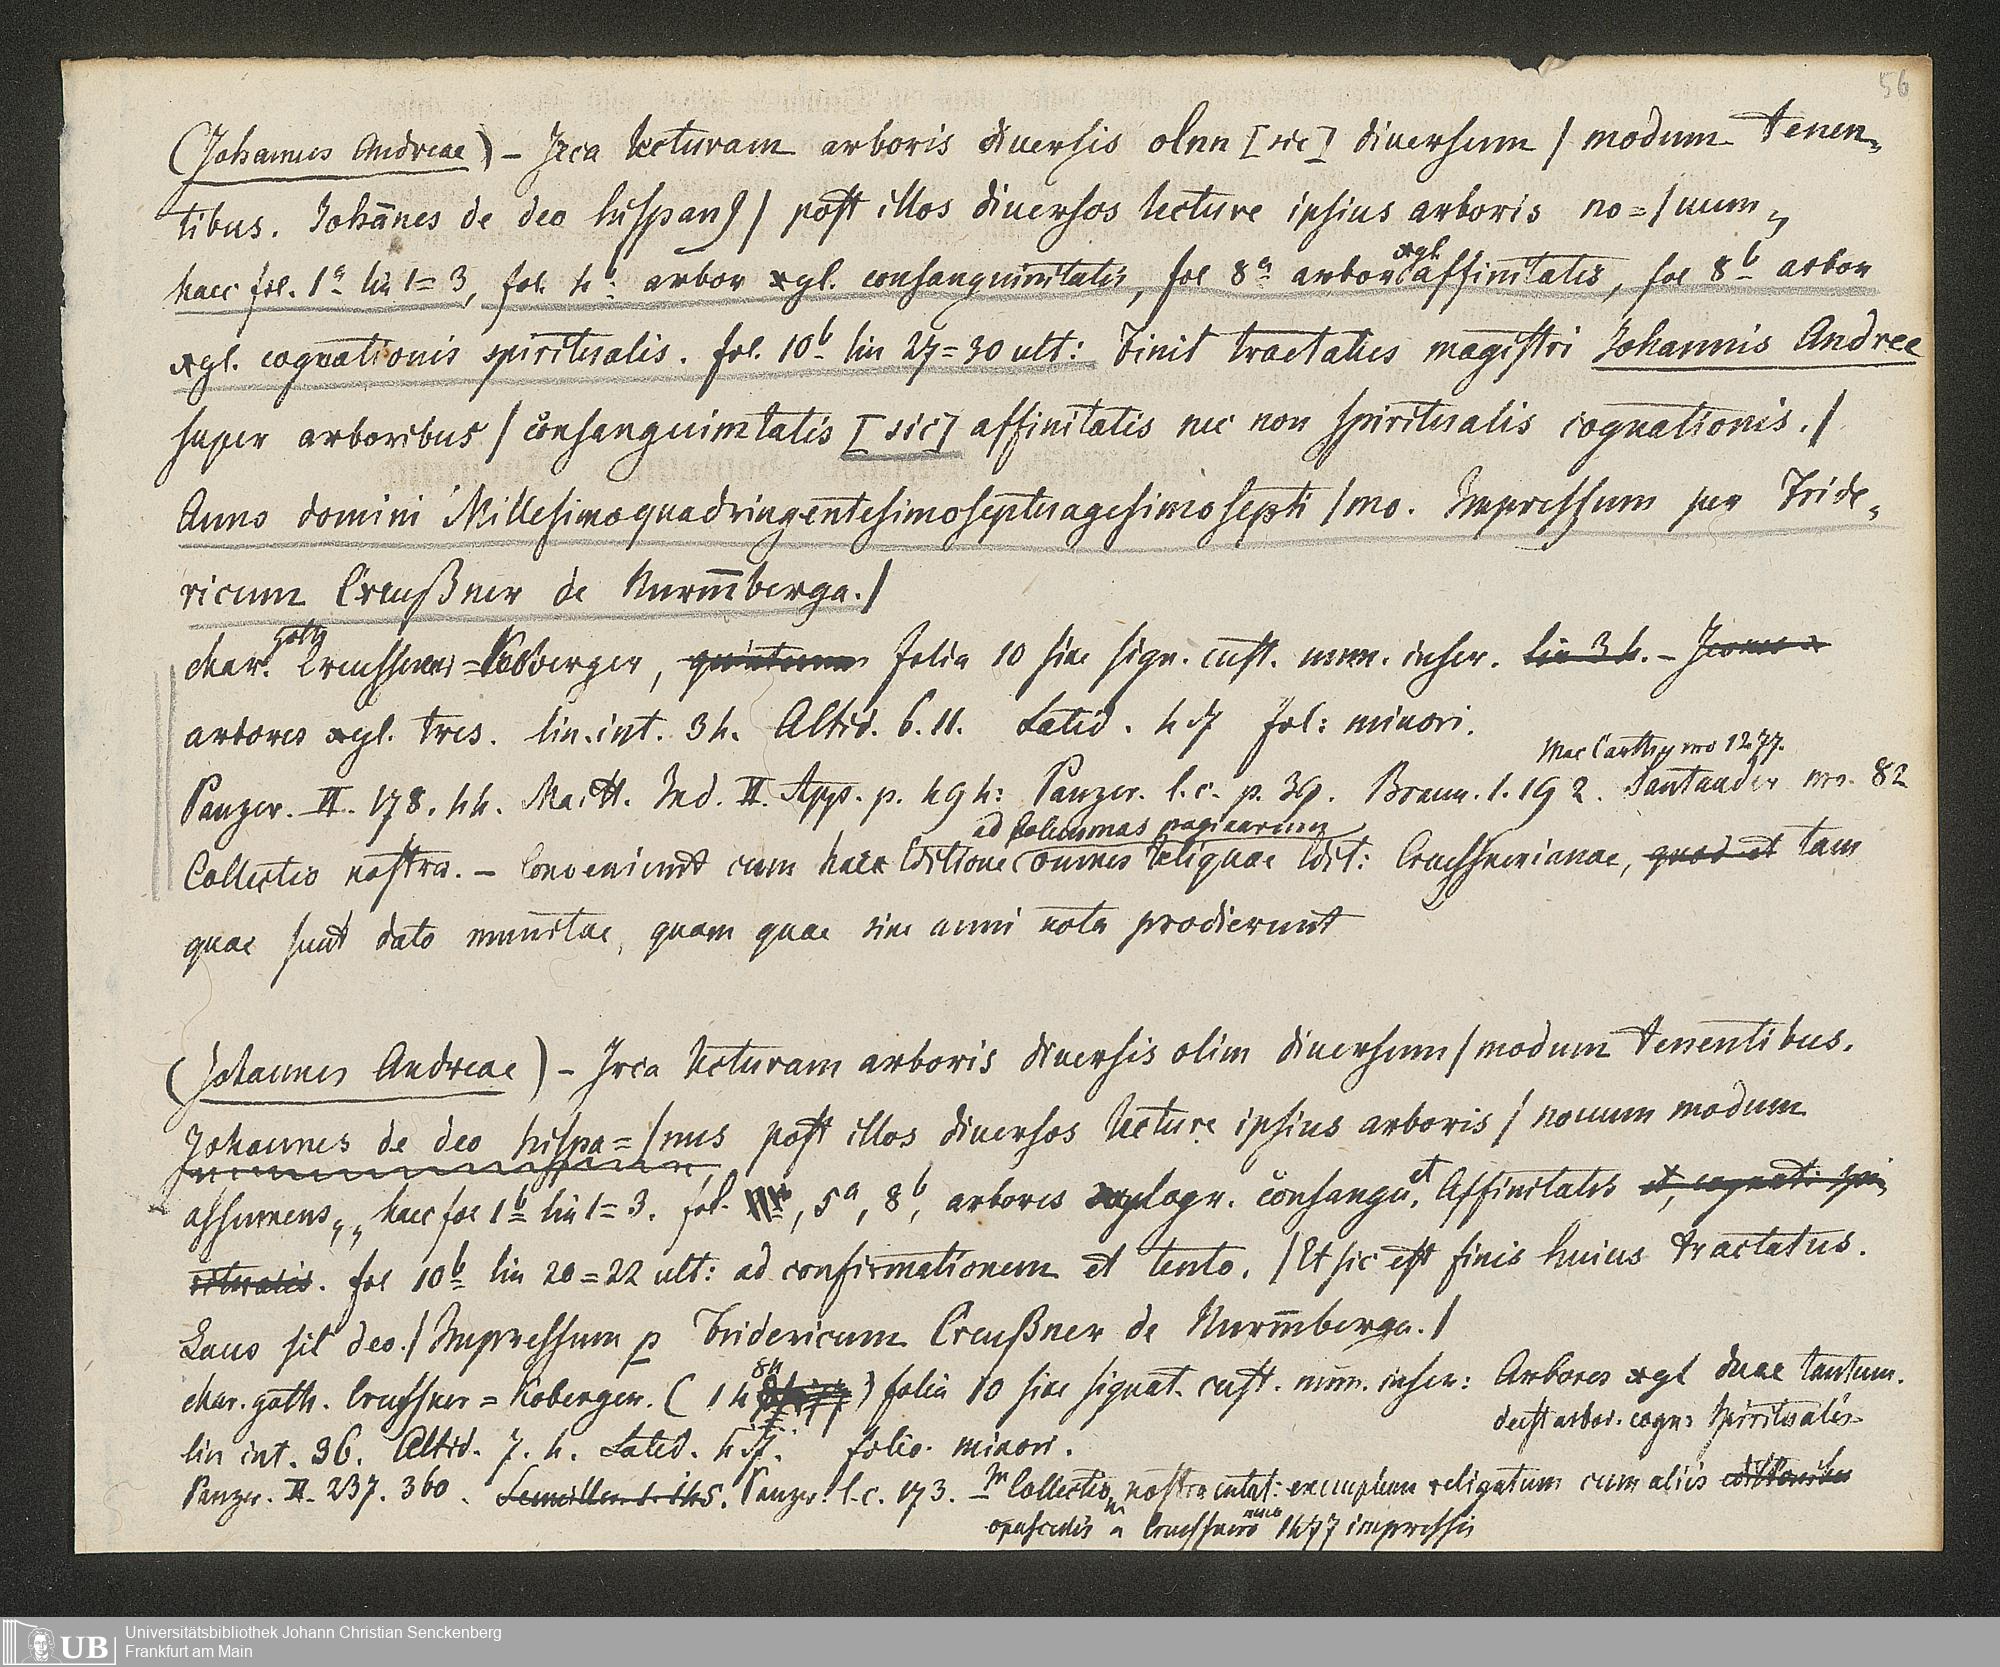 56
(Johannes Andreae) – Irca lecturam arboris diuersis olnn [sic] diuersum / modum tenen„
tibus. Johānes de deo hispanꝰ / post illos diuersos lecture ipsius arboris no=/uum „
haec fol. 1a lin 1=3, fol. 4b arbor xgl. consanguinitatis, fol 8a arbor xgl. affinitatis, fol 8b arbor
xgl. cognationis spiritualis. fol. 10b lin 27=30 ult: Finit tractatus magistri Johannis Andree
super arboribus / cōnsanguimtatis [sic] affinitatis nec non spiritualis cognationis. /
Anno domini Millesimoquadringentesimoseptuagesimosepti /mo. Impressum per Fride„
ricum Creußner de Nurm̄berga. /
char. goth Creussner=Koberger, folia 10 sine sign. cust. num. inser. lin 34. –
arbores xgl. tres. lin. int. 34. Altid. 6.11. Latid. 4. fol: minori.
Mac Carthy nro 1277.
Panzer. II. 178. 44. Maitt. Ind. II. App. p. 494: Panzer. l. c. p. 39. Braun. 1. 192. Santander nro. 82
ad columnas paginarum
Collectio nostra. – Conveniunt cum hace Editione omnes reliquae Edit: Creussnerianae, quod et tam
quae sunt dato munitae, quam quae sine anni nota prodierunt
(Johannes Andreae) – Irca lecturam arboris diuersis olim diuersum / modum tenentibus.
Johannes de deo hispa=/nus post illos diuersos lecture ipsius arboris / nouum modum
assumens„„ haec fol 1b lin 1=3. fol. 5a, 8b, arbores xylogr. cōnsangu. et Affinitatis et, cognati. spi„
ritualis. fol 10b lin 20=22 ult: ad confirmationem et tento. / Et sic est finis huius tractatus.
Laus sit deo. / Impressum p Fridericum Creußner de Nurm̄berga. /
char. goth. Creussner=Koberger. (14 84) folia 10 sine signat. cust. num. inser: Arbores xgl duae tantum.
deest arbor. cogn: Spiritualis
lin int. 36. Altid. 7. 4. Latid. folio minori.
Panzer. II. 237. 360. Panzer. l. c. 173. In Collectio„ nostra extat: exemplum religatum cum aliis editionibus
opusculis a Creussnero 1477 impressis
Universitätsbibliothek Johann Christian Senckenberg
UB Frankfurt am Main